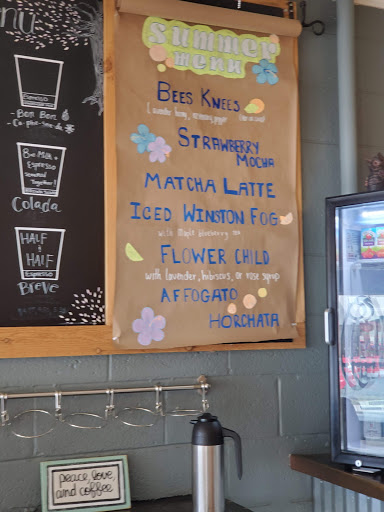 nu
Espresso
- Bon Bon
- Ca-phe-sua-da
Milk +
Espresso
Steamed
Together!
Colada
Half
&
Half
Espresso
Breve
Summer
menu
Bees Knees
Strawberry
Mocha
Matcha Latte
Iced Winston Fog
with Maple blueberry tea
Flower Child
with lavender, hibiscus, or rose syrup
Affogato
Horchata
peace, love,
and coffee